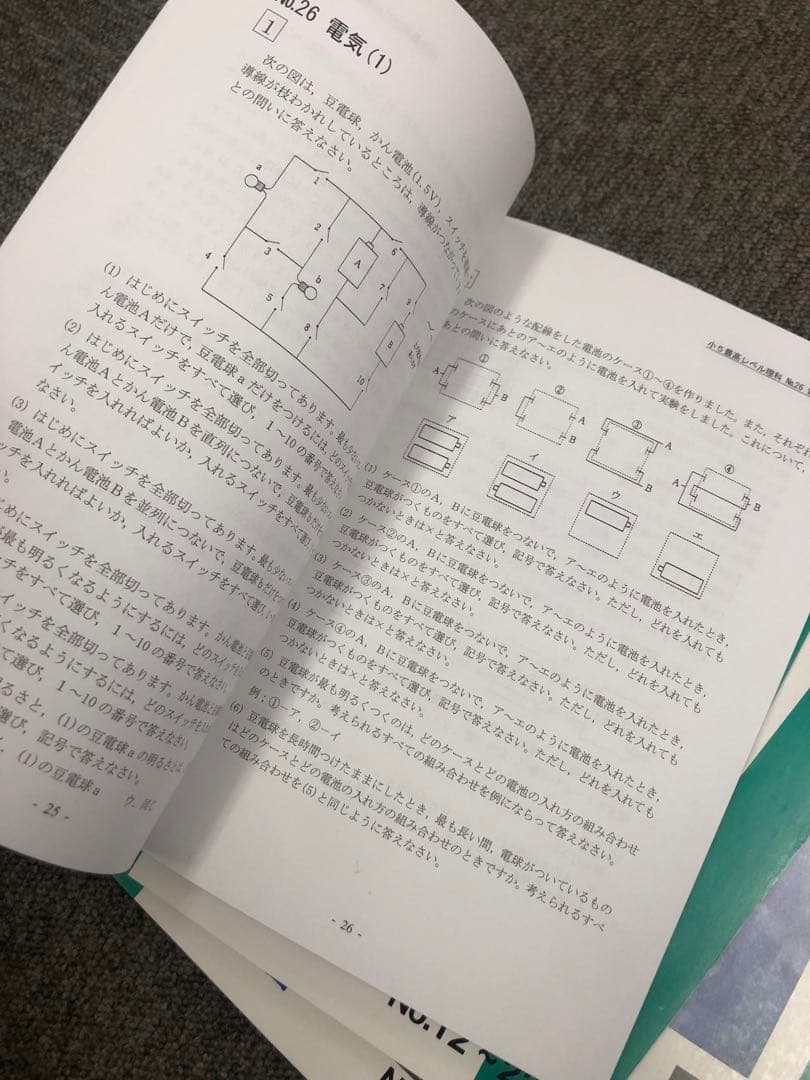 No.26 電気(1)
1
次の図は，豆電球，かん電池(1.5V)，スイッチを
導線が枝わかれしているところは，導線がつながって
との問いに答えなさい。
a
1
2
3
4
5
b
6
7
8
9
10
A
B
(1) はじめにスイッチを全部切ってあります。最も少ない
ん電池Aだけで，豆電球aだけをつけるには，どのスイッチ
入れるスイッチをすべて選び，1〜10の番号で答えなさい
(2) はじめにスイッチを全部切ってあります。最も少な
ん電池Aとかん電池Bを直列につないで，豆電球
イッチを入れればよいか，入れるスイッチをすべて
なさい。
(3) はじめにスイッチを全部切ってあります。最も少ない
電池Aとかん電池Bを並列につないで，豆電球bだけ
ッチを入れればよいか，入れるスイッチをすべて選び，
い。
じめにスイッチを全部切ってあります。かん電池
が最も明るくなるようにするには，どのスイッチを
ッチをすべて選び，1〜10の番号で答えなさい
イッチを全部切ってあります。かん電池
くなるようにするには，どのスイッチを入
べて選び，1〜10の番号で答えなさい。
明るさと，(1)の豆電球aの明るさとは
選び，記号で答えなさい。
(1)の豆電球a
ウ．同じ
- 25 -
小5最高レベル理科 No26
次の図のような配線をした電池のケース①〜④を作りました。また，それぞれ
のケースにあとのア〜エのように電池を入れて実験をしました。これについて，
あとの問いに答えなさい。
① ② ③ ④
A B A B A B A B
ア イ ウ エ
(1) ケース①のA，Bに豆電球をつないで，ア〜エのように電池を入れたとき，
豆電球がつくものをすべて選び，記号で答えなさい。ただし，どれを入れても
つかないときは×と答えなさい。
(2) ケース②のA，Bに豆電球をつないで，ア〜エのように電池を入れたとき，
豆電球がつくものをすべて選び，記号で答えなさい。ただし，どれを入れても
つかないときは×と答えなさい。
(3) ケース③のA，Bに豆電球をつないで，ア〜エのように電池を入れたとき，
豆電球がつくものをすべて選び，記号で答えなさい。ただし，どれを入れても
つかないときは×と答えなさい。
(4) ケース④のA，Bに豆電球をつないで，ア〜エのように電池を入れたとき，
豆電球がつくものをすべて選び，記号で答えなさい。ただし，どれを入れても
つかないときは×と答えなさい。
(5) 豆電球が最も明るくつくのは，どのケースとどの電池の入れ方の組み合わせ
のときですか。考えられるすべての組み合わせを例にならって答えなさい。
例：①ーア，②ーイ
(6) 豆電球を長時間つけたままにしたとき，最も長い間，電球がついているもの
はどのケースとどの電池の入れ方の組み合わせのときですか。考えられるすべ
ての組み合わせを(5)と同じように答えなさい。
- 26 -
No.12〜2
N